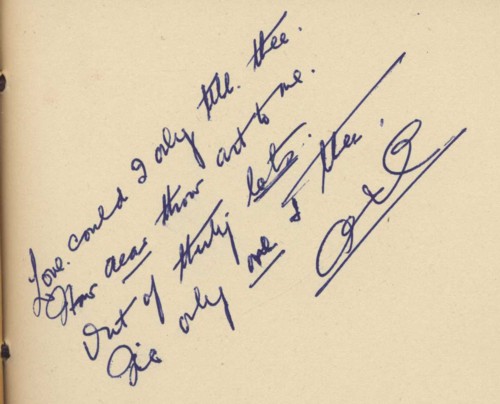 Love. could I only tell. thee.
How dear thow art to me.
Out of thirty lets.
only one I thee.